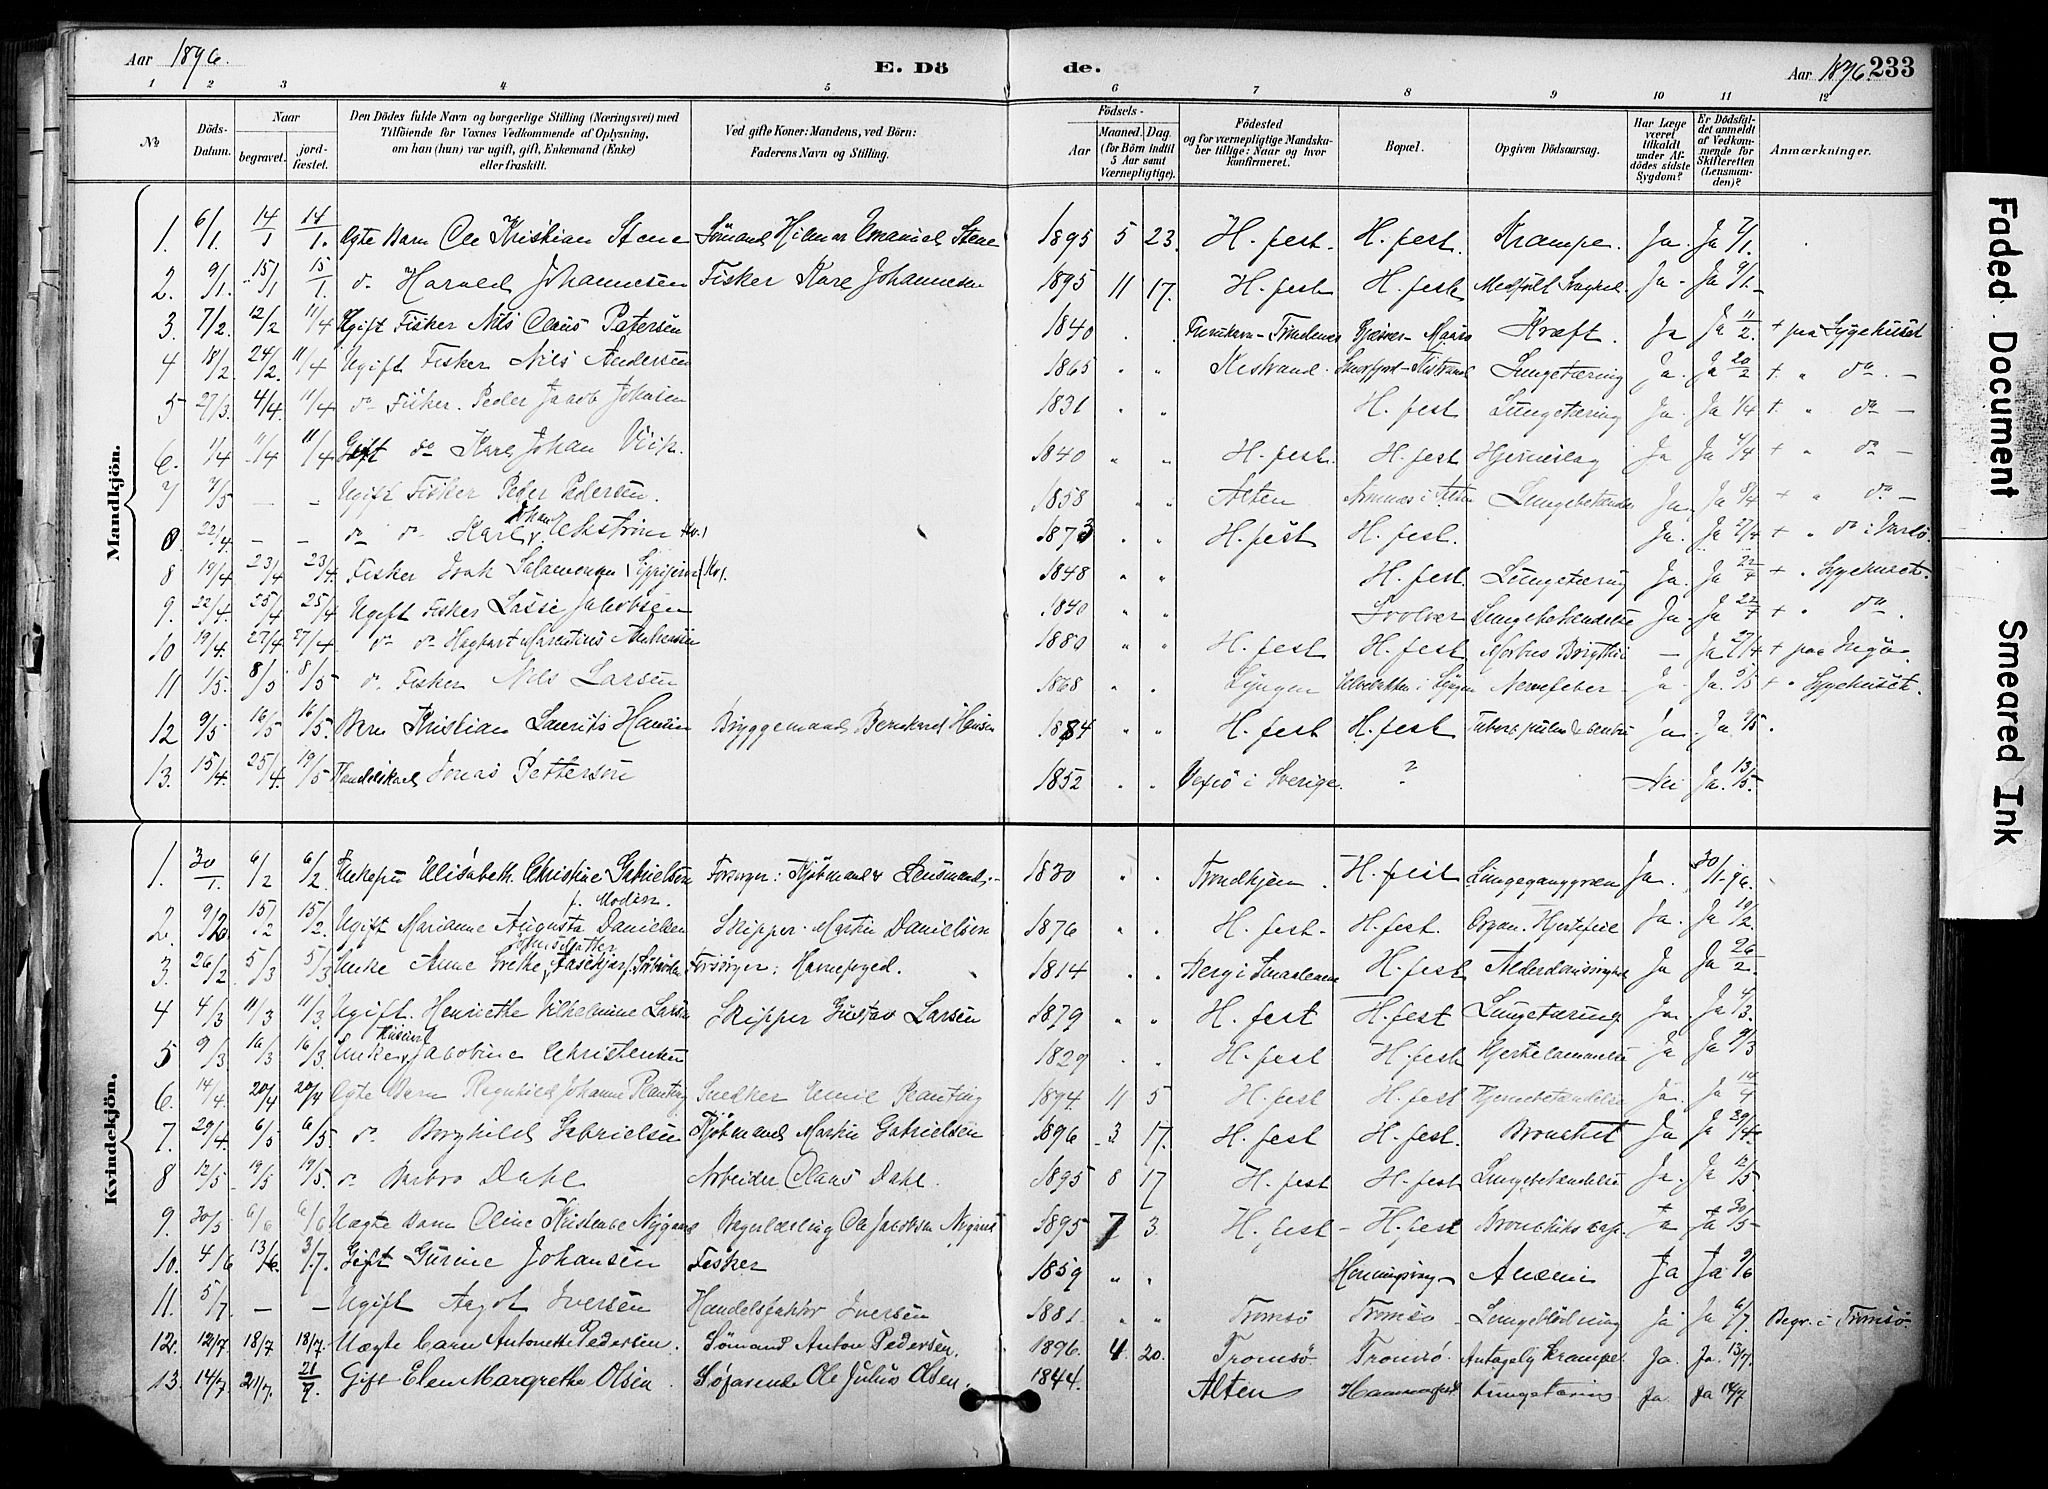 Aar 1896. E. Dö de. Aar 1896 233
1 2 3 4 5 6 7 8 9 10 11 12
No Döds-Datum. Naar begravet. jord-fæstet. Den Dödes fulde Navn og borgerlige Stilling (Næringsvei) med Tilföiende for Voxnes Vedkommende af Oplysning, om han (hun) var ugift, gift, Enkemand (Enke) eller fraskilt. Ved gifte Koner: Mandens, ved Börn: Faderens Navn og Stilling. Födsels- Aar Maaned. Dag. (for Börn indtil 5 Aar samt Værnepligtige). Födested og for værnepligtige Mandskaber tillige: Naar og hvor konfirmeret. Bopæl. Opgiven Dödsaarsag. Har Læge været tilkaldt under Afdödes sidste Sygdom? Er Dödsfaldet anmeldt af Vedkommende for Skifteretten (Lensmanden)? Anmærkninger.
Mandkjön.
1. 6/1 14/1 14/1. Ægte Barn Ole Kristian Stene Sömand Hilmar Emanuel Stene 1895 5 23. H. fest. H. fest. Krampe. Ja. Ja 7/1.
2. 9/1. 15/1 15/1. do Harald Johannesen Fisker Karl Johannesen 1895 11 17. H. fest H. fest Medfødt Svaghed Ja - Ja 9/1.
3. 7/2. 12/2 11/4 Ugift Fisker Nils Claus Petersen 1840 Kræft. Ja Ja 11/2 + paa Sygehuset
4 18/2. 24/2. 11/4 Ugift Fisker Nils Andersen 1865 " " Kistrand. Smørfjord - Kistrand Lungetæring Ja. Ja 20/2 +. " do. -
5 27/3. 4/4. 11/4 do Fisker. Peder Jacob Johnsen 1831 " " H. fest Lungetæring Ja. Ja 1/4 +. " do -
6. 1/4 11/4 11/4 Gift do Karl Johan Wiik. 1840 " " H. fest. H. fest Hjerneslag Ja Ja 4/4 + " do -
7 7/5 - - Ugift Fisker Peder Pedersen. 1858 " " Alten i Alten Lungebetændelse Ja. Ja 8/4 + " do -
8. 22/4. - - do do Karl Johan Eckström 1873 " " H. fest H. fest. Ja. Ja 21/4 + " do i Vardö.
8 19/4 23/4 23/4. Fisker Isak Salamonsen 1848 " " H. fest. Lungetæring Ja. Ja 22/4 + " Sygehuset.
9. 22/4. 25/4 25/4 Ugift Fisker Lasse Jakobsen 1840 " " Svolvær Lungebetændelse Ja. Ja 22/4 + " do.
10 19/4. 27/4 27/4 do do Hagbart Marentius Andersen 1880 " " H. fest H. fest Morbus Brigthii - Ja 27/4 + paa Ingö.
11 1/5. 8/5 8/5 do Fisker Nils Larsen 1868 " " Lyngen i Lyngen Nervefeber - Ja. Ja. 5/5 + " Sygehuset.
12 9/5 16/5 16/5. Barn Kristian Laurits Hansen Bryggemand Bernhard Hansen 1884 " " H. fest H. fest Ja. Ja 9/5.
13. 15/4. 25/4. 19/5 Handelskarl Jonas Pettersen 1852 " " Vexiö i Sverige. ? Nei Ja. 13/5.
Kvindekjön.
1. 30/1. 6/2 6/2. Enkefru Elisabeth Christine Gabrielsen f. Modin. Forsörger: Kjöbmand Lensmand 1830 " " Trondhjem. H. fest Lungegangræn Ja. 30/1-96.
2. 9/2 15/2 15/2. Ugift Marianne Augusta Danielsen Skipper Martin Danielsen 1876 " " H. fest. H. fest. Organ. Hjertefeil Ja. Ja 10/2.
3. 26/2 5/3 5/3 Enke Anne Grethe Forsörger: Havnefoged. 1814 " " Berg i Smaalenene H. fest. Alderdomssvaghed Ja Ja 26/2
4 4/3 11/3 11/3. Ugift. Henriette Vilhelmine Larsen Skipper Gustav Larsen 1879 " " H. fest H. fest Lungetæring. Ja. Ja 4/3.
5 9/3 16/3 16/3. Enke Jacobine Christensen 1829 " " H. fest H. fest Hjertelammelse Ja Ja 9/3
6. 14/4. 20/4 20/4 Ægte Barn Ragnhild Johanne Planting Snedker Emil Planting 1894. 11 5 H. fest H. fest Hjernebetændelse Ja. Ja 14/4
7. 29/4. 6/5 6/5 do Borghild Gabrielsen Kjöbmand Martin Gabrielsen 1896 3 17. H. fest H. fest. Bronchit Ja Ja 29/4.
8 12/5 19/5 19/5. do Barbro Dahl Arbeider Claus Dahl. 1895 8 17 H. fest H. fest Lungebetændelse Ja. Ja 12/5
9. 30/5 6/6 6/6 Uægte Barn Oline Kristense Nygaard Bagerlærling Ole Jacobsen Nygaard 1895 7 3. H. fest - H. fest Bronchitis cap. Ja Ja 30/5
10. 4/6 13/6. 3/7. Gift Gurine Johansen Fisker 1859 " " Honningsvaag - Anæmi Ja Ja. 9/6
11. 5/7. - - Ugift Aagot Iversen Handelsfaktör Iversen 1881. " " Tromsö Tromsö Lungeblödning Ja Ja 6/7. Begr. i Tromsö.
12. 12/7. 18/7 18/7. Uægte barn Antonette Pedersen. Sömand Anton Pedersen. 1896. 4 20. Tromsö. Tromsö. Antagelig Krampe. Ja. Ja. 13/7.
13. 14/7. 21/7. 21/7. Gift Elen Margrethe Olsen Søfarende Ole Julius Olsen. 1844. Alten Hammerfest Lungetæring Ja. Ja 14/7.
Faded Document
Smeared Ink